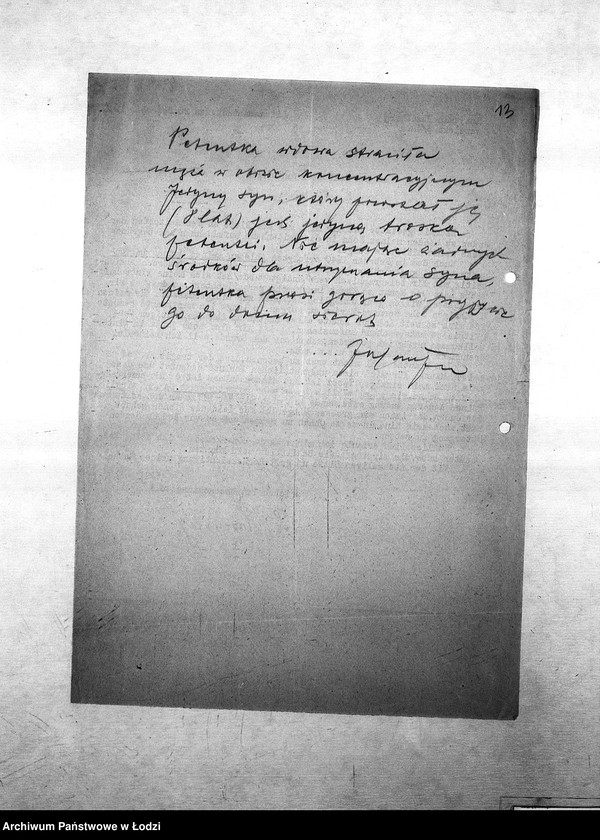 13
Petentka wdowa straciła
męża w obozie koncentracyjnym
Jedyny syn, który pozostał jej
(8 lat) jest jedyną troską
petentki. Nie mając żadnych
środków dla utrzymania syna,
petentka prosi gorąco o przyjęcie
go do domu sierot
Archiwum Państwowe w Łodzi